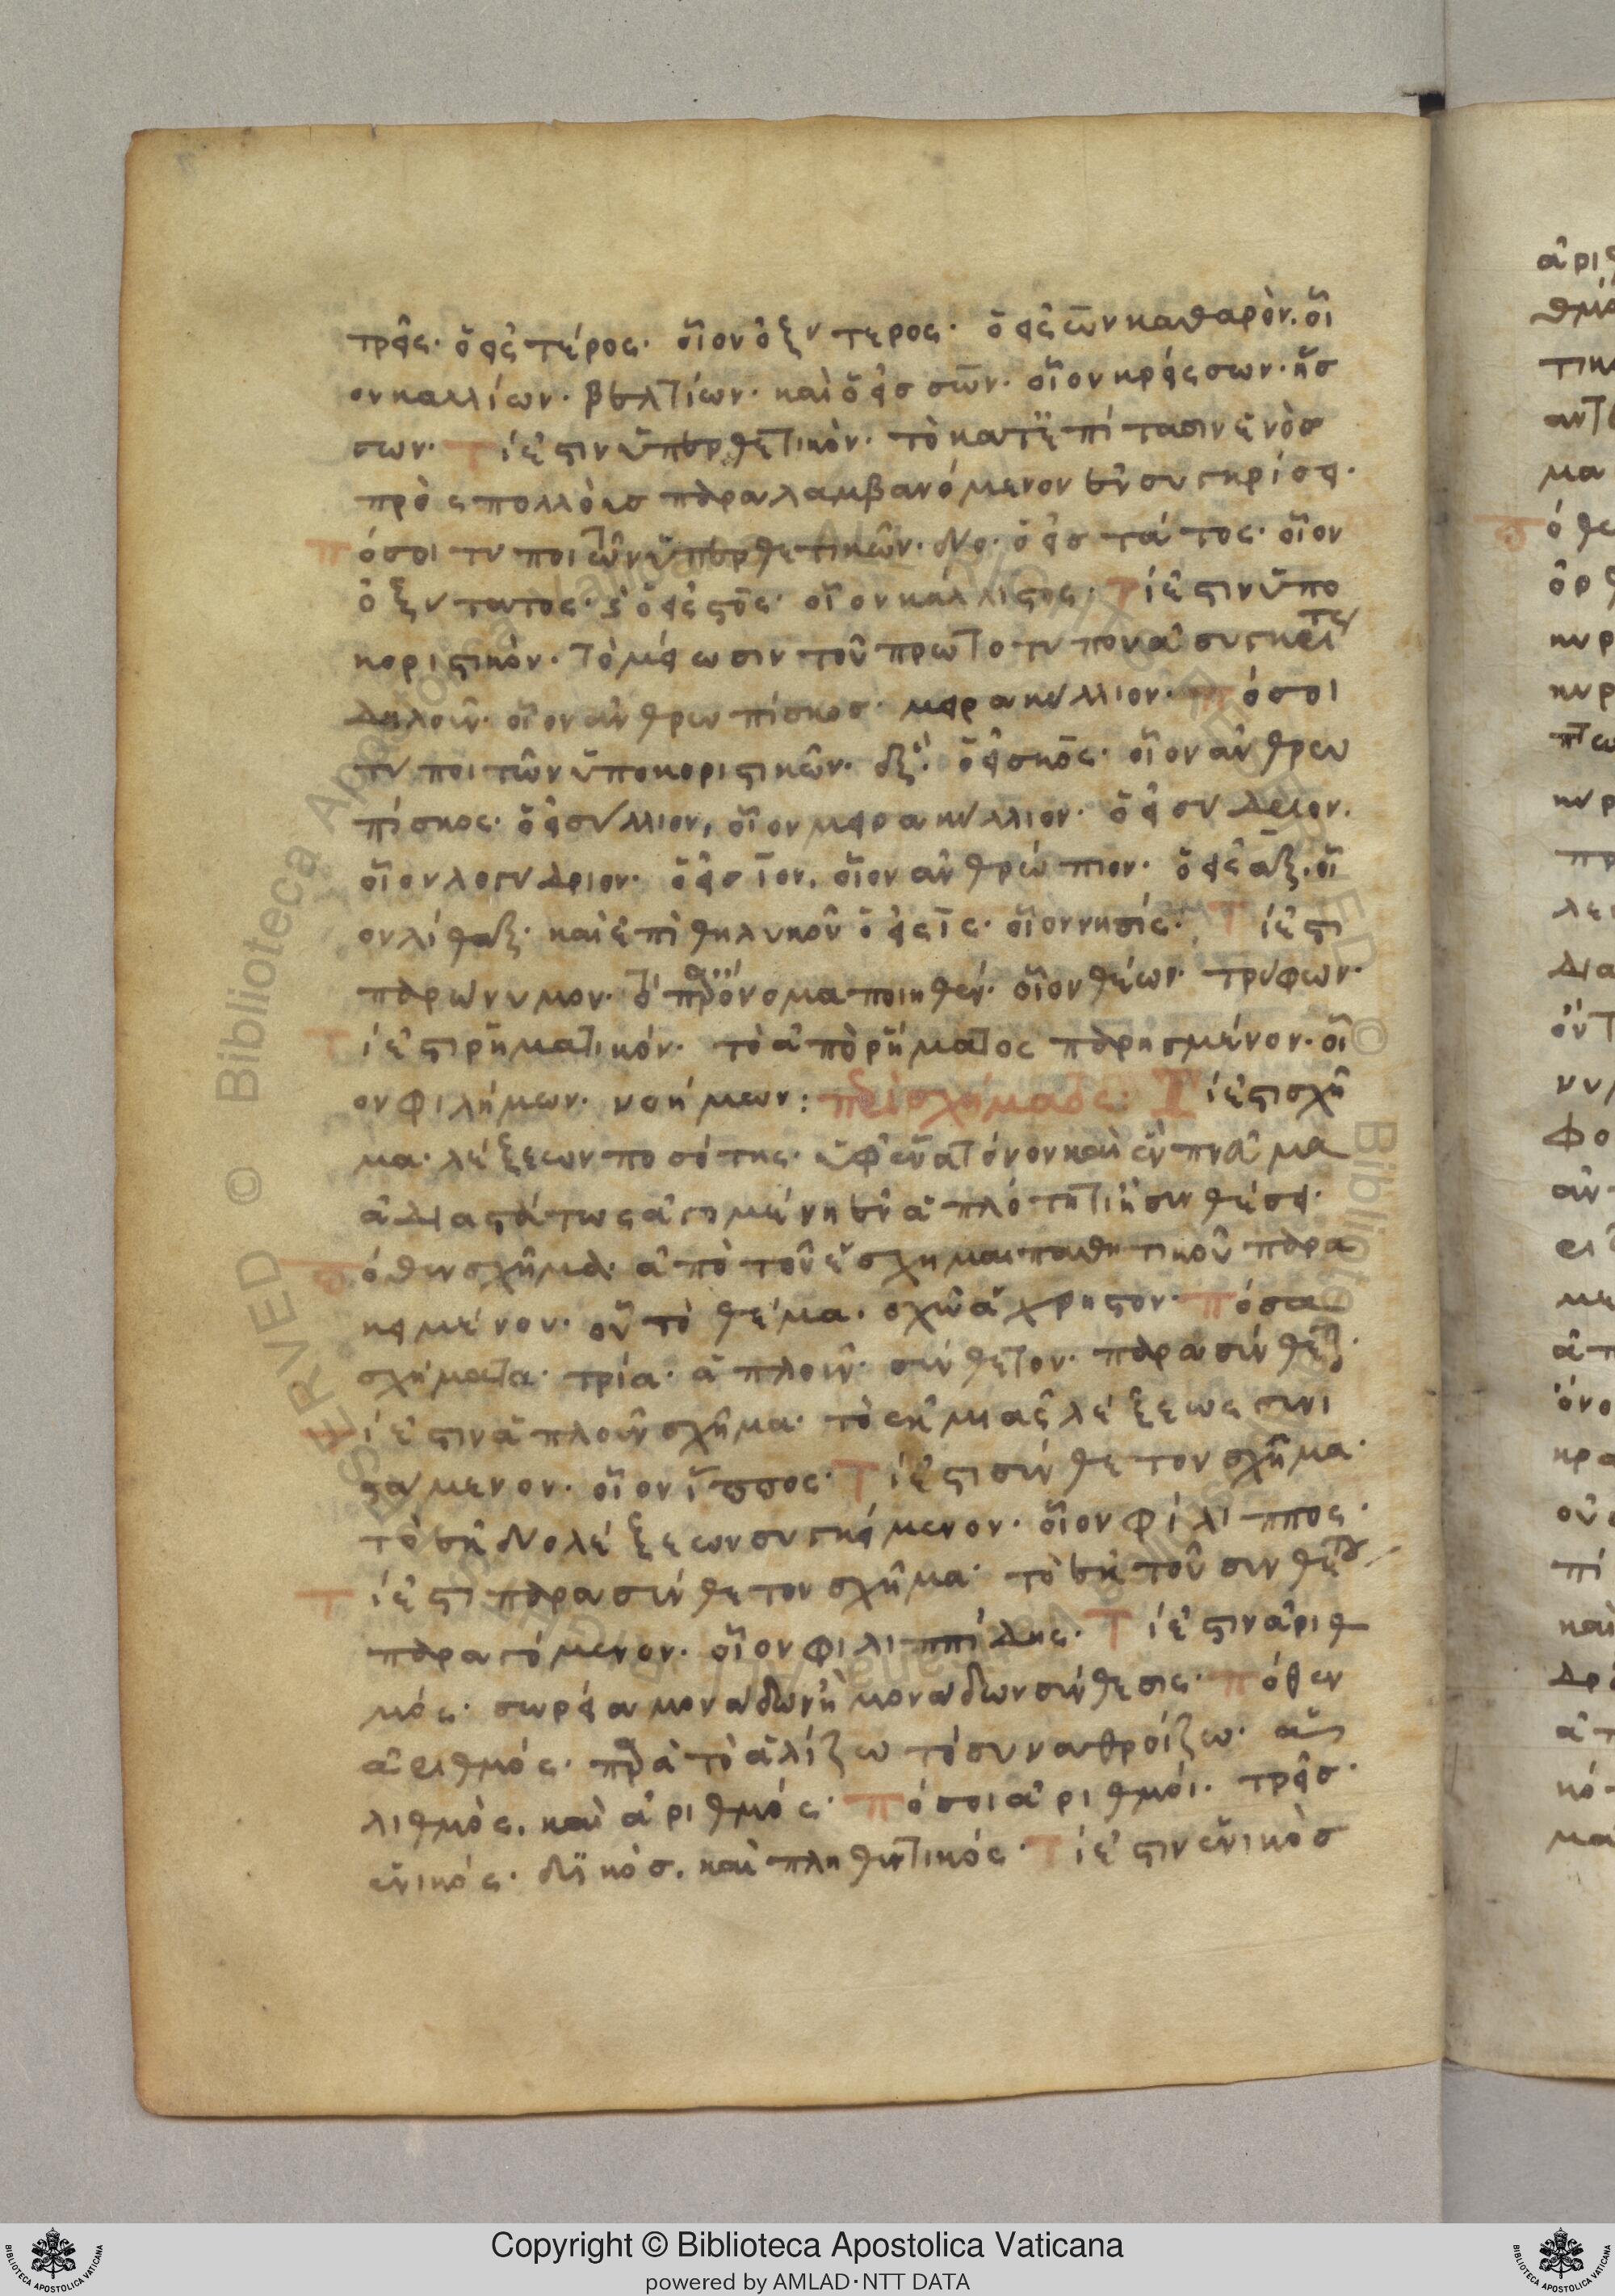 τρεῖς· ὁ εἰς τέρος· οἷον ὀξύτερος· ὁ εἰς ων καθαρὸν. οἷ
ον καλλίων· βελτίων· καὶ ὁ εἰς σων· οἷον κρείσσων· ἥσ
σων· Τί ἐστιν ὑπερθετικὸν· τὸ κατ' ἐπίτασιν ἑνὸς
πρὸς πολλοὺς παραλαμβανόμενον ἐν συγκρίσει·
Πόσοι τύποι τῶν ὑπερθετικῶν· δύο· ὁ εἰς τάτος· οἷον
ὀξύτατος· ὁ εἰς στος· οἷον κάλλιστος· Τί ἐστιν ὑπο
κοριστικὸν· τὸ μείωσιν τοῦ πρωτοτύπου ἀσυγκρίτως
δηλοῦν· οἷον ἀνθρωπίσκος· μειρακύλλιον· Πόσοι
τύποι τῶν ὑποκοριστικῶν· ἕξ· ὁ εἰς κος· οἷον ἀνθρω
πίσκος· ὁ εἰς ύλλιον, οἷον μειρακύλλιον· ὁ εἰς ύδριον.
οἷον λογύδριον· ὁ εἰς ιον, οἷον ἀνθρώπιον· ὁ εἰς αξ. οἷ
ον λίθαξ· καὶ ἐπὶ θηλυκοῦ ὁ εἰς ις· οἷον νησίς· Τί ἐστι
παρώνυμον· τὸ παρ' ὄνομα ποιηθέν· οἷον θέων· τρύφων·
Τί ἐστι ῥηματικόν· τὸ ἀπὸ ῥήματος παρηγμένον· οἷ
ον φιλήμων· νοήμων: περὶ σχήματος· Τί ἐστι σχῆ
μα· λέξεων ποσότης· ὑφ' ἕνα τόνον καὶ ἓν πνεῦμα
ἀδιαστάτως ἀγομένη ἐν ἁπλότητι ἢ συνθέσει·
Πόθεν σχῆμα· ἀπὸ τοῦ ἔσχημαι παθητικοῦ παρα
κειμένου· οὗ τὸ θέμα. σχῶ ἄχρηστον· Πόσα
σχήματα· τρία· ἁπλοῦν· σύνθετον· παρασύνθετον·
Τί ἐστιν ἁπλοῦν σχῆμα· τὸ ἐκ μιᾶς λέξεως συνι
στάμενον· οἷον ἵππος· Τί ἐστι σύνθετον σχῆμα·
τὸ ἐκ δύο λέξεων συγκείμενον· οἷον φίλιππος·
Τί ἐστι παρασύνθετον σχῆμα· τὸ ἐκ τοῦ συνθέτου
παραγόμενον· οἷον φιλιππίδης· Τί ἐστιν ἀριθ
μός· σωρεία μονάδων ἢ μονάδων σύνθεσις· Πόθεν
ἀριθμός· παρὰ τὸ ἁλίζω τὸ συναθροίζω· ἁ
λιθμὸς. καὶ ἀριθμός· Πόσοι ἀριθμοί· τρεῖς·
ἑνικός· δυϊκὸς. καὶ πληθυντικός· Τί ἐστιν ἑνικὸς
Copyright © Biblioteca Apostolica Vaticana
powered by AMLAD·NTT DATA